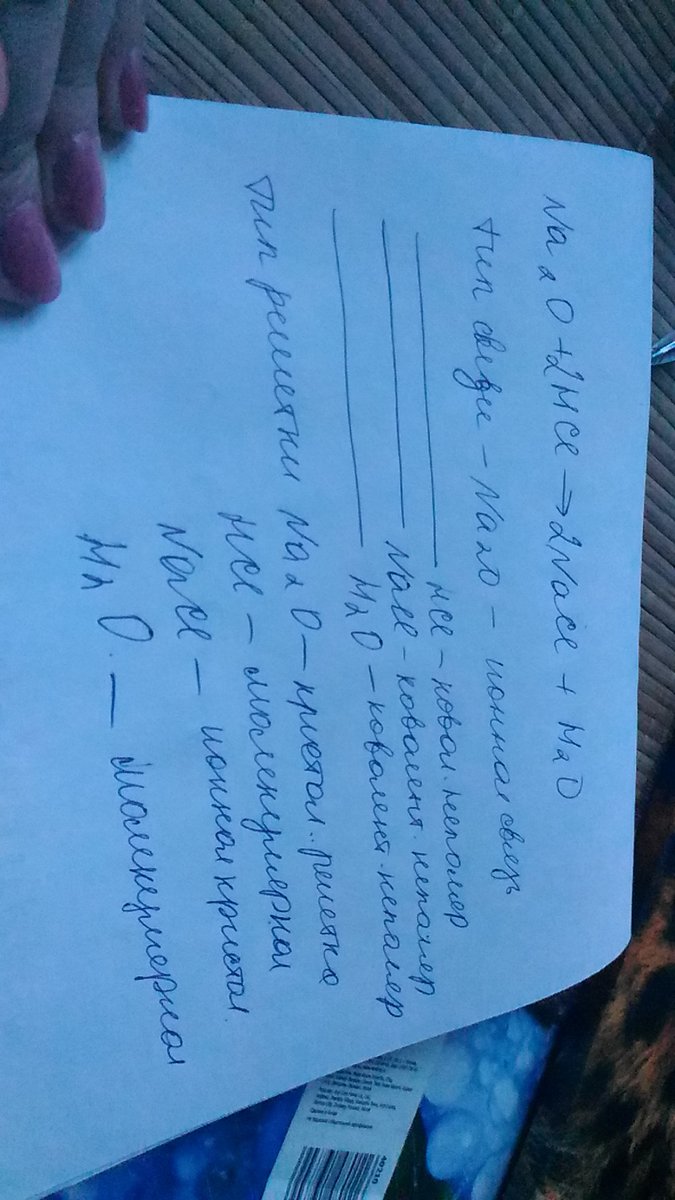 Na2O + 2HCl → 2NaCl + H2O
тип связи – Na2O – ионная связь
HCl – ковал. неполяр
NaCl – ковалент. неполяр
H2O – ковалент. неполяр
Тип решетки Na2O – кристал. решетка
HCl – молекулярная
NaCl – ионная кристал.
H2O. – молекулярная
40210